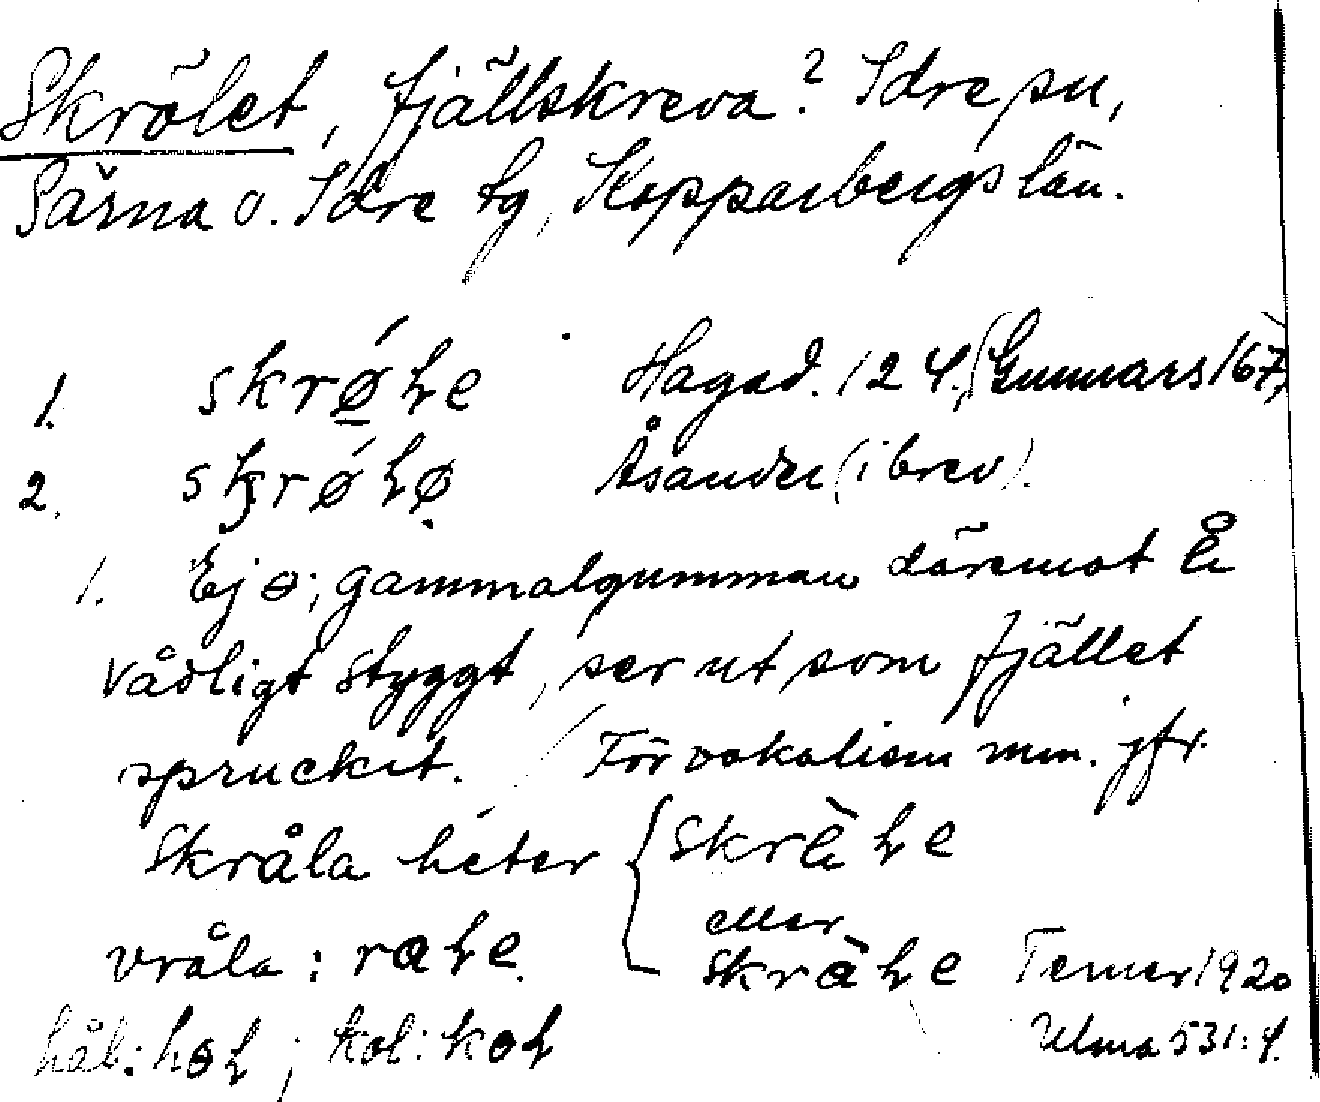 Skrölet, fjällskreva? Idre sn,
Särna o. Idre tg, Kopparbergs län.
1. skrǿɫe Hagad. 124, (Gunnars 167)
2. skrǿɫø Åsander (i brev).
1. Ej ɵ; gammalgumman däremot
vådligt styggt, ser ut som fjället
spruckit. / För vokalism mm. jfr
Skråla heter { skrèɫe
eller
vråla: raɫe. skràɫe Tener 1920
hål: hɵɫ; kol: kɵɫ Ulma 531:4.